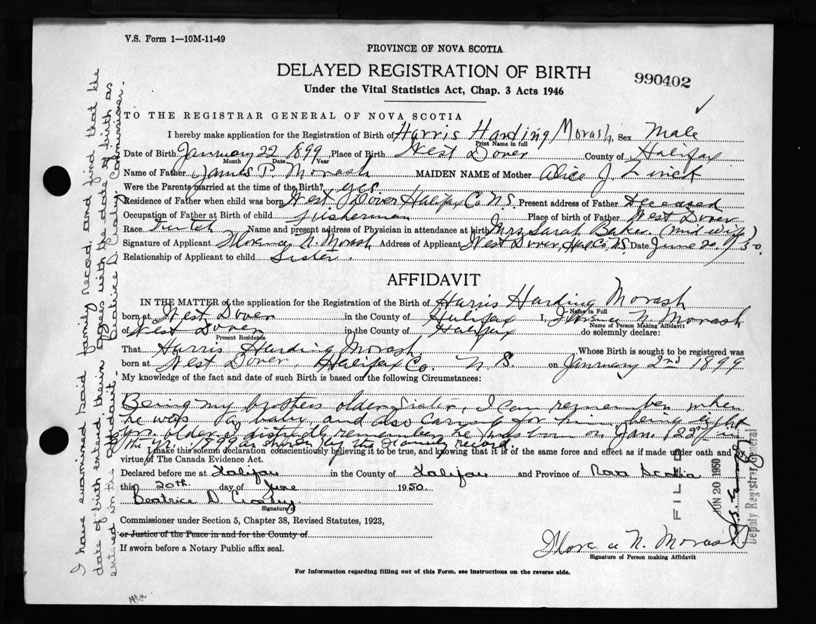 V.S. Form 1—10M-11-49
PROVINCE OF NOVA SCOTIA
DELAYED REGISTRATION OF BIRTH
990402
Under the Vital Statistics Act, Chap. 3 Acts 1946
TO THE REGISTRAR GENERAL OF NOVA SCOTIA
I hereby make application for the Registration of Birth of Harris Harding Morash, Sex Male
Print Name in full
Date of Birth January 22 1899 Place of Birth West Dover County of Halifax
Month Date Year
Name of Father James P. Morash MAIDEN NAME of Mother Alice J.
Were the Parents married at the time of the Birth? yes
Residence of Father when child was born West Dover Halifax Co N.S. Present address of Father Deceased
Occupation of Father at Birth of child fisherman Place of birth of Father West Dover
Race Name and present address of Physician in attendance at birth Mrs Sarah Baker (mid wife)
Signature of Applicant N. Morash Address of Applicant West Dover, Date June 20
Relationship of Applicant to child Sister
AFFIDAVIT
IN THE MATTER of the application for the Registration of the Birth of Harris Harding Morash
Name in Full
born at West Dover in the County of Halifax I, N. Morash
Name of Person Making Affidavit
of West Dover in the County of Halifax do solemnly declare:
Present Residence
That Harris Harding Morash Whose Birth is sought to be registered was
born at West Dover, Halifax Co. N.S. on January 2nd 1899
My knowledge of the fact and date of such Birth is based on the following Circumstances:
Being my brothers older Sister, I can remember when
he was a baby, and also caring for him being eight
years older, distinctly remember he was born on Jan.
1899 as shown by the family record.
I make this solemn declaration conscientiously believing it to be true, and knowing that it is of the same force and effect as if made under oath and by
virtue of The Canada Evidence Act.
Declared before me at Halifax in the County of Halifax and Province of Nova Scotia
this 20th day of June 1950
Beatrice D. Crosby
Signature
Commissioner under Section 5, Chapter 38, Revised Statutes, 1923,
or Justice of the Peace in and for the County of
If sworn before a Notary Public affix seal.
N. Morash
Signature of Person making Affidavit
For Information regarding filling out of this Form, see instructions on the reverse side.
I have examined said family record and find that the
date of birth entered therein agrees with the date of birth as
entered in the affidavit. Beatrice D. Crosby, Commissioner.
FILED
JUN 20 1950
Deputy Registrar General